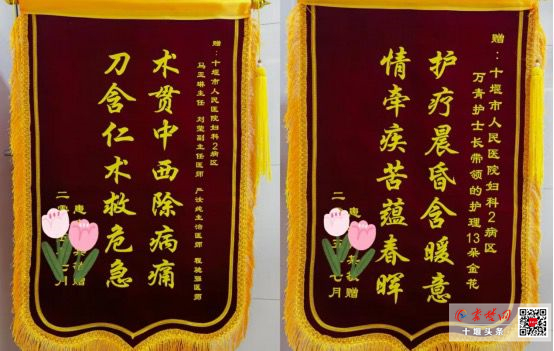 赠：十堰市人民医院妇科2病区
马玉琳主任 刘莹副主任医师 主治医师 医师
术贯中西除病痛
刀含仁术救危急
二 七月
赠：十堰市人民医院妇科2病区
万青护士长带领的护理13朵金花
护疗晨昏含暖意
情牵疾苦蕴春晖
二 五 七月
秦楚网
十堰头条